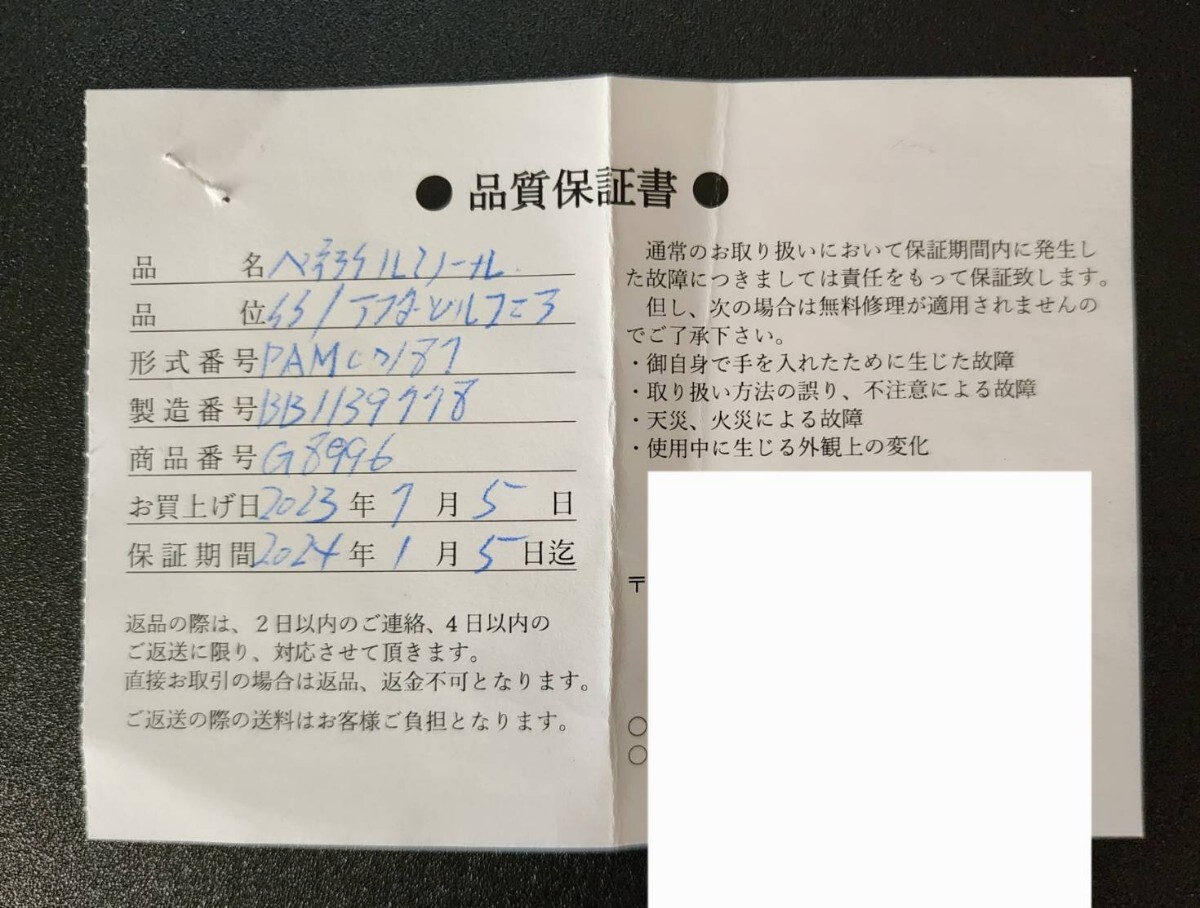 ● 品質保証書 ●
品 名
品 位 SS /
形式番号 PAM00187
製造番号 BB1139778
商品番号 G8996
お買上げ日 2023 年 7 月 5 日
保証期間 2024 年 1 月 5 日迄
返品の際は、2日以内のご連絡、4日以内の
ご返送に限り、対応させて頂きます。
直接お取引の場合は返品、返金不可となります。
ご返送の際の送料はお客様ご負担となります。
通常のお取り扱いにおいて保証期間内に発生し
た故障につきましては責任をもって保証致します。
但し、次の場合は無料修理が適用されませんの
でご了承下さい。
・御自身で手を入れたために生じた故障
・取り扱い方法の誤り、不注意による故障
・天災、火災による故障
・使用中に生じる外観上の変化
〒
○
○